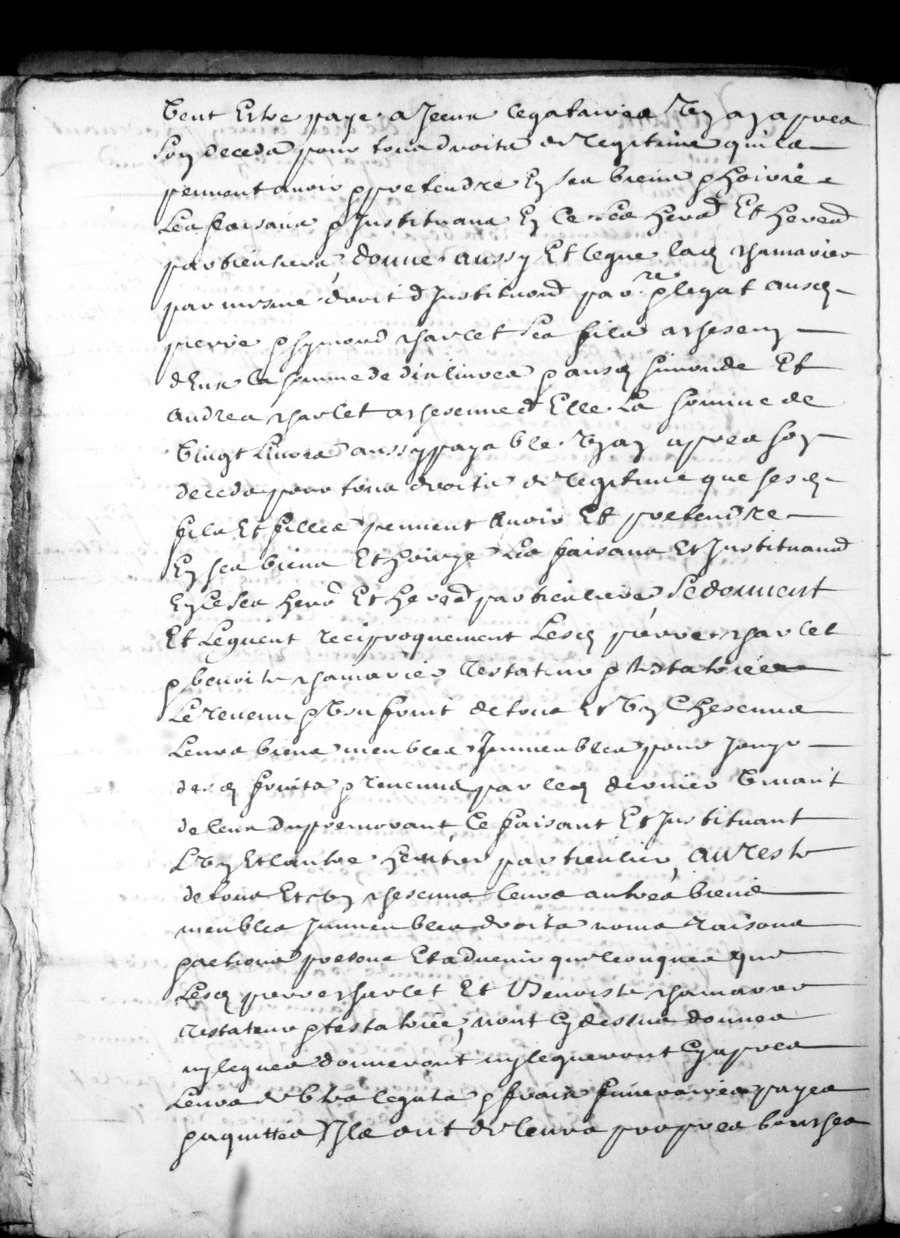 veut Estre paye a Iceux legataires Ung an apres
son deceds pour tous droits de legitime quils
peuvent avoir & pretendre En ses biens & hoirie
Les faisans & Instituans En Ce ses herd Et hered
particuliers, donne aussy Et legue lad chamarier
par mesme droit d'Instituon par re & legat ausd
pierre & symond charlet ses fils a chescung
d'Eux la somme de dix livres & ausd simonde Et
Andrea charlet a chescune d'Elle La somme de
Vingt Livres aussy payable Ung an apres son
deceds pour tous droits de legitime que sesd
fils Et filles peuvent Avoir Et pretendre
En ses biens Et hoirye Les faisans Et Instituans
En Ce ses herd Et hered particuliers, Se donnent
Et Leguent reciproquement Lesd pierre charlet
& benoiste chamarier Testateur & testatrice
Le revenu & Usufruit de tous Et Ung Chescuns
Leurs biens meubles Immeubles pour Jouyr
desd fruits & revenus par led dernier Vivant
de leur dupremourant Ce faisant Et Instituant
L'Un Et l'autre heritier particulier, Au Reste
de tous Et Ung chescuns leurs autres biens
meubles Immeubles droits noms Raisons
& actions presens Et advenir quelconques que
Lesd pierre charlet Et Benoiste chamarier
Testateur & testatrice, n'ont Cy dessus donnes
ny legues donneront ny legueront Cy apres
Leurs debtes legats & frais funeraires payes
& aquittes Ils ont de leurs propres bouches